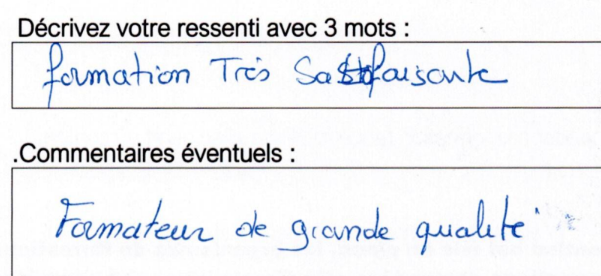 Décrivez votre ressenti avec 3 mots :
formation Très Satisfaisante
.Commentaires éventuels :
Formateur de grande qualité